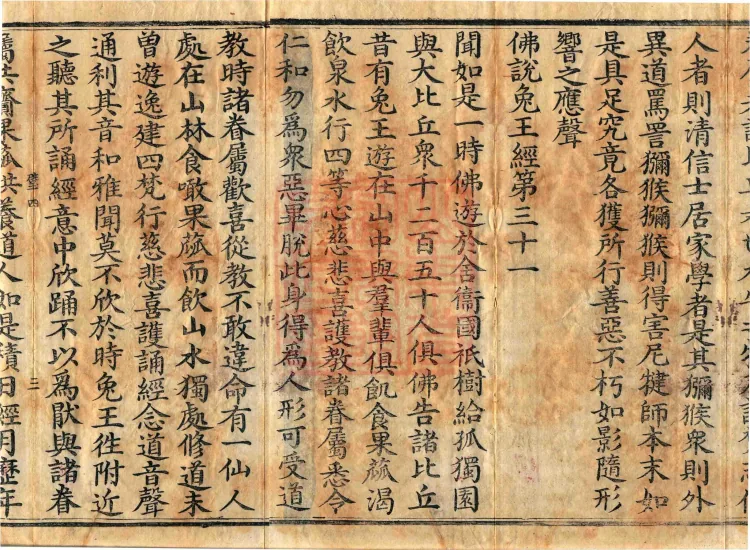 人者則清信士居家學者是其獼猴衆則外
異道罵詈獼猴獼猴則得害尼揵師本末如
是具足究竟各獲所行善惡不朽如影隨形
響之應聲
佛說兔王經第三十一
聞如是一時佛遊於舍衞國祇樹給孤獨園
與大比丘衆千二百五十人俱佛告諸比丘
昔有兔王遊在山中與羣輩俱飢食果蓏渴
飲泉水行四等心慈悲喜護教諸眷屬悉令
仁和勿爲衆惡畢脫此身得爲人形可受道
教時諸眷屬歡喜從教不敢違命有一仙人
處在山林食噉果蓏而飲山水獨處修道未
曾遊逸建四梵行慈悲喜護誦經念道音聲
通利其音和雅聞莫不欣於時兔王徃附近
之聽其所誦經意中欣踊不以爲猒與諸眷
屬共齎果蓏供養道人如是積日經月歷年
四
三